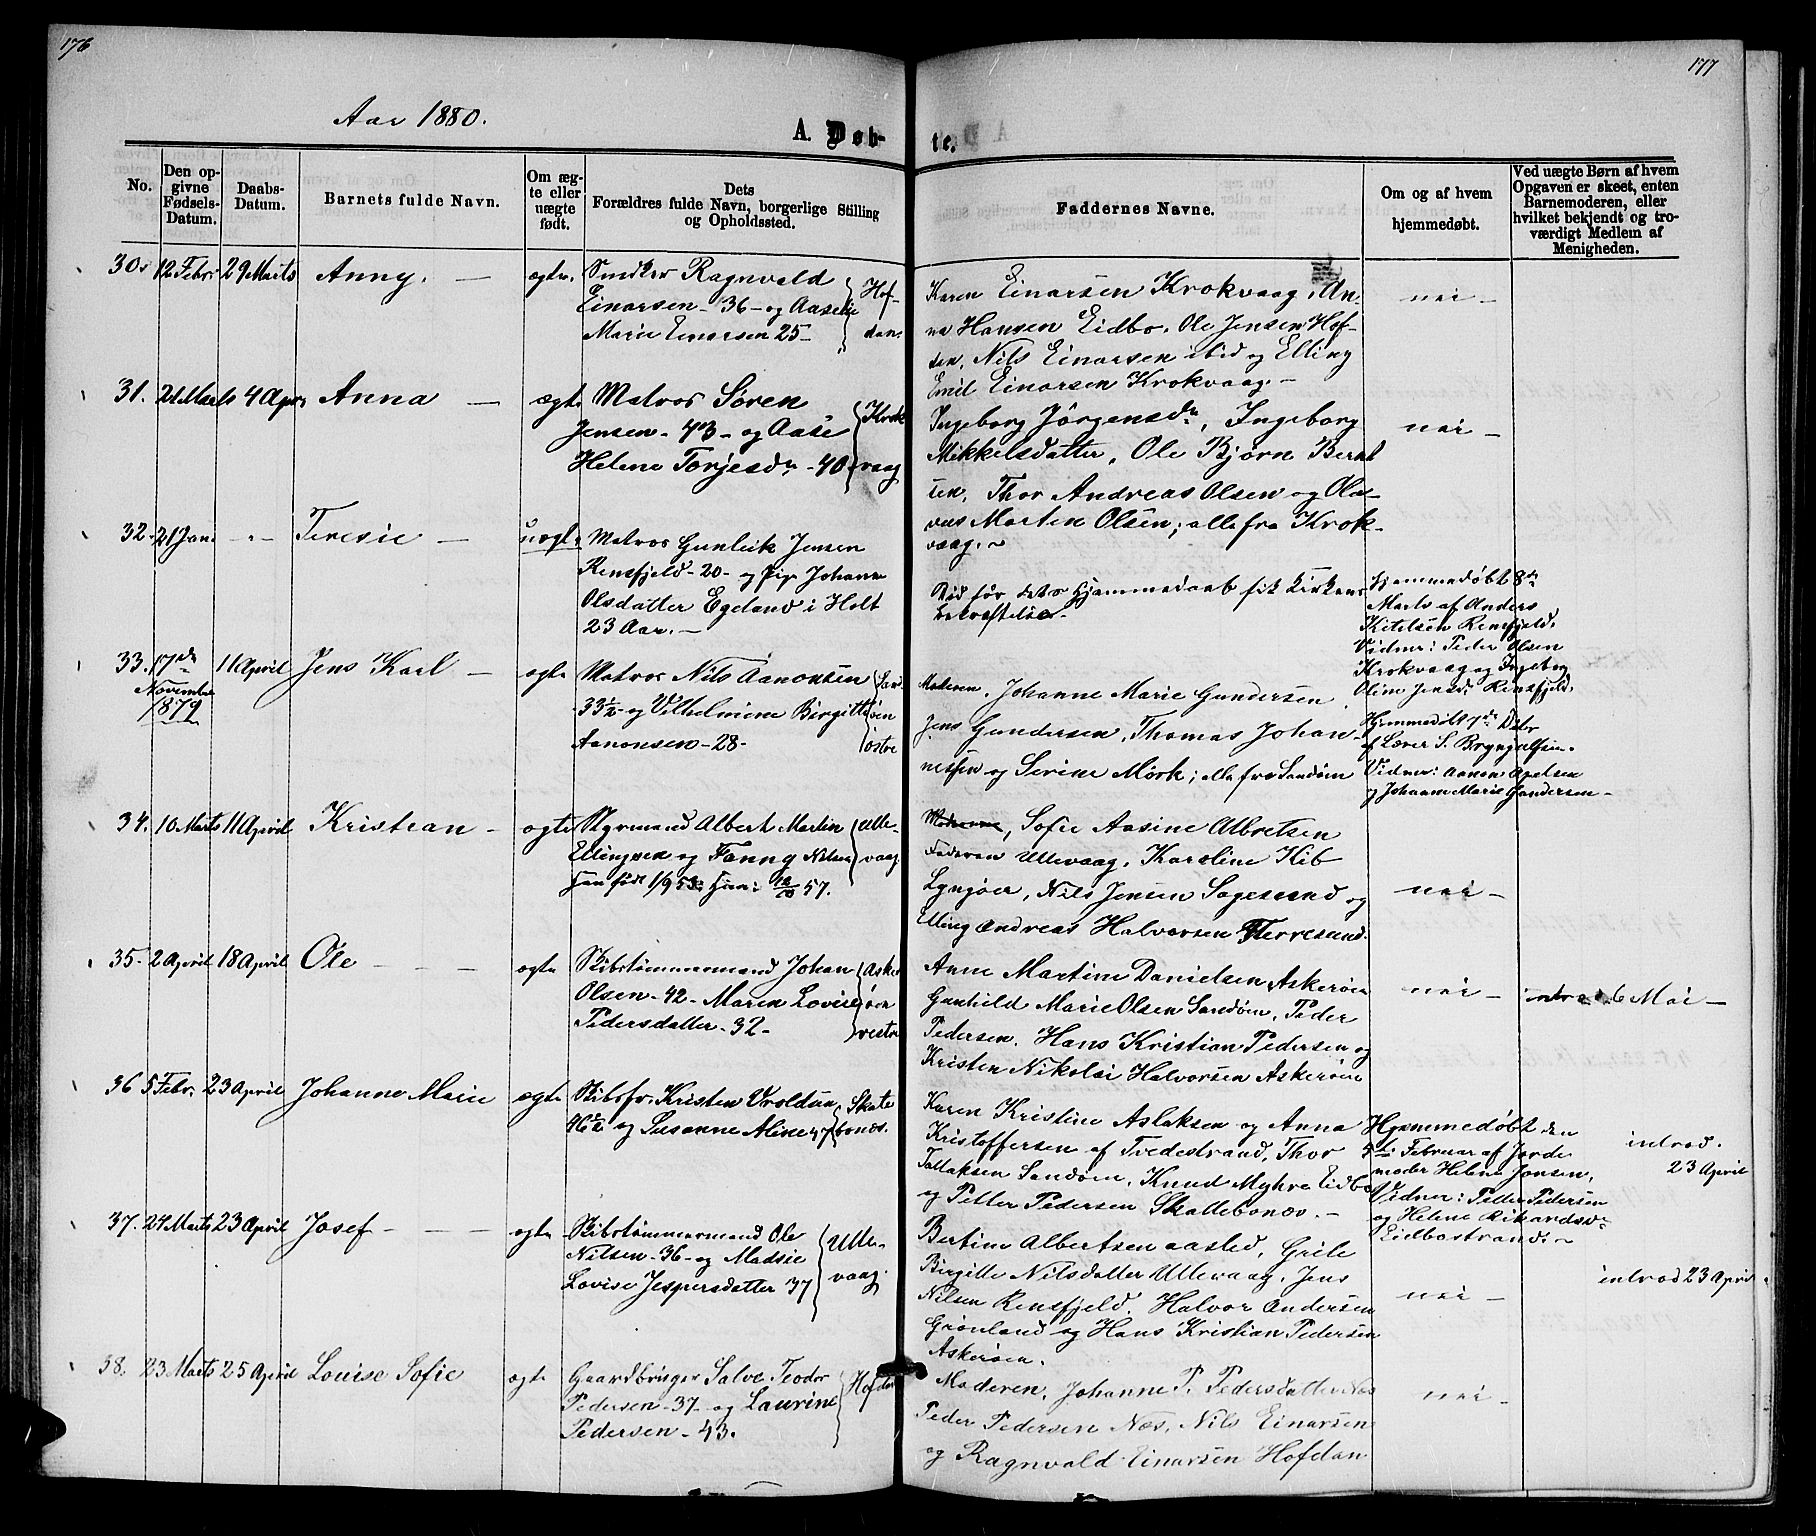 176
177
Aar 1880.
A. Døb-
te.
No.
Den op-
givne
Fødsels-
Datum.
Daabs-
Datum.
Barnets fulde Navn.
Om æg-
te eller
uægte
født.
Dets
Forældres fulde Navn, borgerlige Stilling
og Opholdssted.
Faddernes Navne.
Om og af hvem
hjemmedøbt.
Ved uægte Børn af hvem
Opgaven er skeet, enten
Barnemoderen, eller
hvilket bekjendt og tro-
værdigt Medlem af
Menigheden.
30. 12 Febr 29 Marts Anny. — ægte.
Smeker Ragnvald
Einarsen - 36 - og Aaselie
Marie Einarsen 25 -
Hof-
dan.
Karen Einarsen Krokvaag, An-
na Hansen Eidbo, Ole Jensen Hof-
dan, Nils Einarsen ibid og Elling
Emil Einarsen Krokvaag. -
nei -
31. 21 Marts 4 Apr. Anna — ægte
Matros Søren
Jensen - 43 - og Aase
Helene Torjesdr - 40
Krok
vaag
Ingeborg Jørgensdr, Ingeborg
Mikkelsdatter, Ole Bjørn Bernt
sen, Thor Andreas Olsen og Ola-
vus Marten Olsen; alle fra Krok-
vaag. -
nei -
32. 21 Jan. - " - Teresie — uægte
Matros Gunleik Jensen
Rensfjeld - 20 - og Pige Johanne
Olsdatter Egeland i Holt
23 Aar. -
Død før dets Hjemmedaab fik Kirkens
bekræftelse.
Hjemmedøbt 8de
Marts af Anders
Kitelsen Rensfjeld.
Vidner: Peder Olsen
Krokvaag og Ingeborg
Oline Jensd. Rensfjeld.
33. 17de
November
1879
11 April Jens Karl — ægte
Matros Nils Aanonsen
33½ - og Vilhelmine Birgitte
Aanonsen - 28 -
San-
øen
østre
Moderen, Johanne Marie Gundersen,
Jens Gundersen, Thomas Johan-
nessen og Serine Mørk; alle fra Sandøen
Hjemmedøbt 7de Dcbr
af Lærer S. Bryngelsen.
Vidner: Aanon Apelsen
og Johanne Marie Gundersen -
34. 10 Marts 11 April Kristian — ægte
Styrmand Albert Martin
Ellingsen og Fanny Nilsen
Han født 1/9 53: Hun:  57.
Ulle-
vaag
Sofie Aasine Albretsen
Faderen Ullevaag, Karoline Kib
Lyngøer, Nils Jensen Sagesund og
Elling Andreas Halvorsen Fterresund.
nei -
35 - 2 April 18 April Ole — ægte
Skibstømmermand Johan
Olsen - 42 - Maren Lovise
Pedersdatter - 32 -
Asker
øen
vestre
Anne Martine Danielsen, Askerøen
Gunhild Marie Olsen Sandøen, Peder
Pedersen, Hans Kristian Pedersen og
Kristen Nikolai Halvorsen Askerøen
nei -
introd. 6 Mai -
36 5 Febr. 23 April Johanne Marie ægte
Skibsfr. Kristen Vroldsen
46½ og Susanne Aline 47
Skate
bonæs.
Karen Kristine Aslaksen og Anna
Kristoffersen af Tvedestrand, Thor
Tallaksen Sandøen, Knud Myhre Eidbo
og Petter Pedersen Skattebonæs. -
Hjemmedøbt den
5te Februar af Jorde
moder Helene Jensen,
Vidner: Petter Pedersen
og Helene Rikardsdr
Eidbostrand. -
introd.
23 April
37. 24 Marts 23 April Josef — ægte
Skibstømmermand Ole
Nilsen - 36 - og Madsie
Lovise Jespersdatter 37
Ulle-
vaag.
Bertine Albertsen aasted, Grile
Birgitte Nilsdatter Ullevaag, Jens
Nilsen Rensfjeld, Halvor Andersen
Grønland og Hans Kristian Pedersen
Askerøen.
nei -
introd 23 April
38. 23 Marts 25 April Louise Sofie ægte
Gaardbruger Salve Teodor
Pedersen - 37 - og Laurine
Pedersen - 43.
Hofdan
Moderen, Johanne P. Pedersdatter Næs
Peder Pedersen Næs, Nils Einarsen
og Ragnvald Einarsen Hofdan
nei -